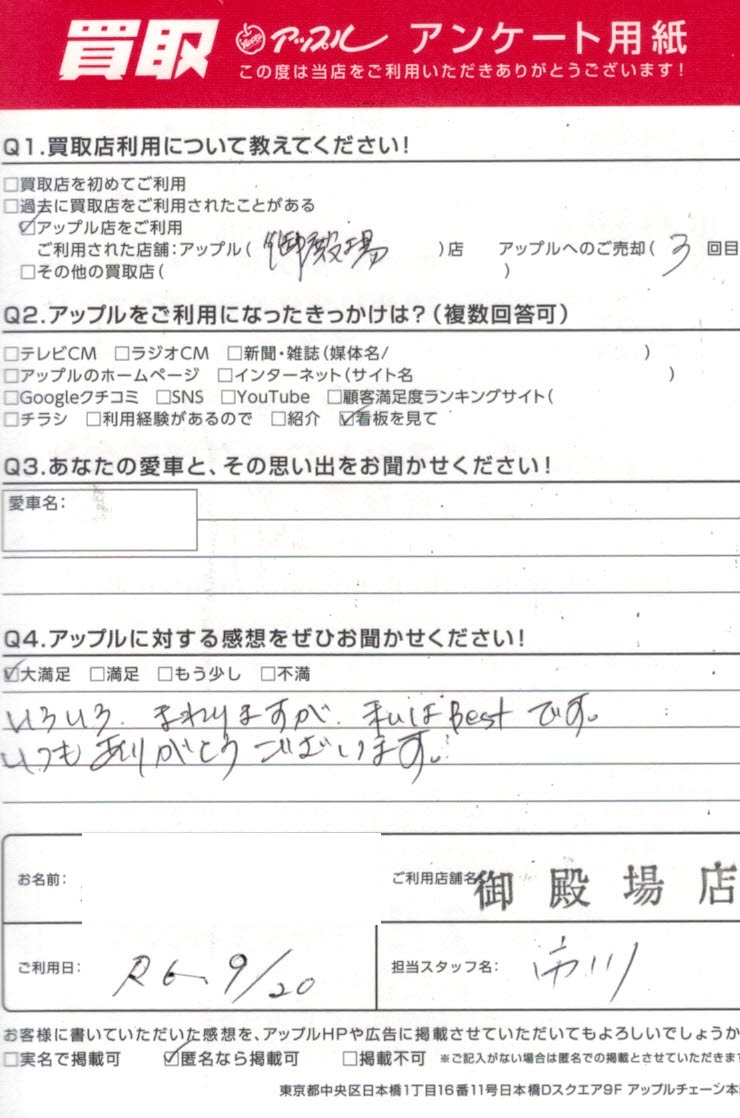 買取 アップル アンケート用紙
この度は当店をご利用いただきありがとうございます!
Q1.買取店利用について教えてください!
□買取店を初めてご利用
□過去に買取店をご利用されたことがある
☑アップル店をご利用
ご利用された店舗:アップル( 御殿場 )店 アップルへのご売却( 3 回目
□その他の買取店( )
Q2.アップルをご利用になったきっかけは?(複数回答可)
□テレビCM □ラジオCM □新聞・雑誌(媒体名/ )
□アップルのホームページ □インターネット(サイト名 )
□Googleクチコミ □SNS □YouTube □顧客満足度ランキングサイト(
□チラシ □利用経験があるので □紹介 ☑看板を見て
Q3.あなたの愛車と、その思い出をお聞かせください!
愛車名:
Q4.アップルに対する感想をぜひお聞かせください!
☑大満足 □満足 □もう少し □不満
いろいろ、まわりますが、私はBestです。
いつもありがとうございます。
お名前:
ご利用店舗名 御殿場店
ご利用日: R6.9/20
担当スタッフ名: 市川
お客様に書いていただいた感想を、アップルHPや広告に掲載させていただいてもよろしいでしょうか
□実名で掲載可 ☑匿名なら掲載可 □掲載不可 ※ご記入がない場合は匿名での掲載とさせていただきます
東京都中央区日本橋1丁目16番11号日本橋Dスクエア9F アップルチェーン本